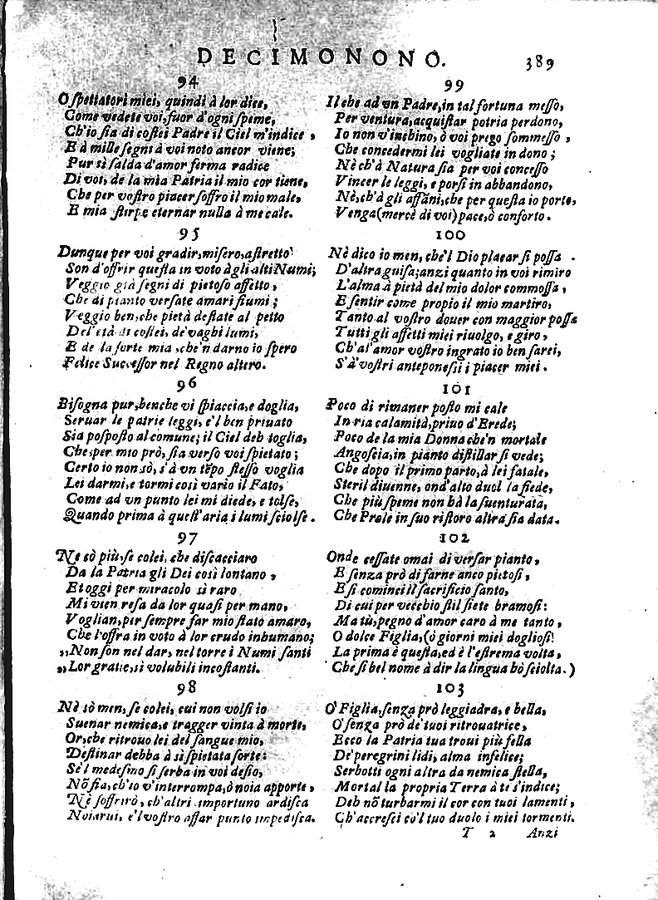 DECIMONONO. 389
94
O spettatori miei, quindi à lor dice,
Come vedete voi, fuor d'ogni speme,
Ch'io sia di costei Padre il Ciel m'indice,
E à mille segni à voi noto ancor viene;
Pur sì salda d'amor ferma radice
Di voi, de la mia Patria il mio cor tiene,
Che per vostro piacer soffro il mio male,
E mia stirpe eternar nulla à me cale.
95
Dunque per voi gradir, misero, astretto
Son d'offrir questa in voto à gli alti Numi;
Veggio già segni di pietoso affetto,
Che di pianto versate amari fiumi;
Veggio ben, che pietà destate al petto
De l'età di costei, de' vaghi lumi,
E de la sorte mia, che'n darno io spero
Felice Successor nel Regno altero.
96
Bisogna pur, benche vi spiaccia, e doglia,
Seruar le patrie leggi, e'l ben priuato
Sia posposto al comune; il Ciel deh toglia,
Che, per mio prò, sia verso voi spietato;
Certo io non sò, s'à vn tẽpo stesso voglia
Lei darmi, e tormi così vario il Fato,
Come ad vn punto lei mi diede, e tolse,
Quando prima à quest'aria i lumi sciolse.
97
Ne sò più, se colei, che discacciaro
Da la Patria gli Dei così lontano,
Et oggi per miracolo sì raro
Mi vien resa da lor quasi per mano,
Voglian, per sempre far mio stato amaro,
Che l'offra in voto à lor crudo inhumano;
,,Non son nel dar, nel torre i Numi santi
,,Lor gratie, sì volubili incostanti.
98
Nè sò men, se colei, cui non volsi io
Suenar nemica, e tragger vinta à morte,
Or, che ritrouo lei del sangue mio,
Destinar debba à sì spietata sorte:
Se'l medesmo si serba in voi desio,
Nõ sia, ch'io v'interrompa, ò noia apporte,
Nè soffrirò, ch'altri importuno ardisca
Noiarui, e'l vostro affar punto impedisca.
99
Il che ad vn Padre, in tal fortuna messo,
Per ventura, acquistar potria perdono,
Io non v'inchino, ò voi prego sommesso,
Che concedermi lei vogliate in dono;
Nè ch'à Natura sia per voi concesso
Vincer le leggi, e porsi in abbandono,
Nè, ch'à gli affãni, che per questa io porto,
Venga (mercè di voi) pace, ò conforto.
100
Nè dico io men, che'l Dio placar si possa
D'altra guisa; anzi quanto in voi rimiro
L'alma à pietà del mio dolor commossa,
E sentir come propio il mio martiro,
Tanto al vostro douer con maggior possa
Tutti gli affetti miei riuolgo, e giro,
Ch'al'amor vostro ingrato io ben sarei,
S'à' vostri anteponessi i piacer miei.
101
Poco di rimaner posto mi cale
In ria calamità, priuo d'Erede;
Poco de la mia Donna che'n mortale
Angoscia, in pianto distillar si vede;
Che dopo il primo parto, à lei fatale,
Steril diuenne, ond'alto duol la fiede,
Che più speme non hà la suenturata,
Che Prole in suo ristoro altra sia data.
102
Onde cessate omai di versar pianto,
E senza prò di farne anco pietosi,
E si cominci il sacrificio santo,
Di cui per vecchio stil siete bramosi:
Ma tù, pegno d'amor caro à me tanto,
O dolce Figlia, (ò giorni miei dogliosi!
La prima è questa, ed è l'estrema volta,
Che sì bel nome à dir la lingua hò sciolta.)
103
O Figlia, senza prò leggiadra, e bella,
O senza prò de' tuoi ritrouatrice,
Ecco la Patria tua troui più fella
De' peregrini lidi, alma infelice;
Serbotti ogni altra da nemica stella,
Mortal la propria Terra à te s'indice;
Deh nõ turbarmi il cor con tuoi lamenti,
Ch'accresci co'l tuo duolo i miei tormenti.
T 2 Anzi